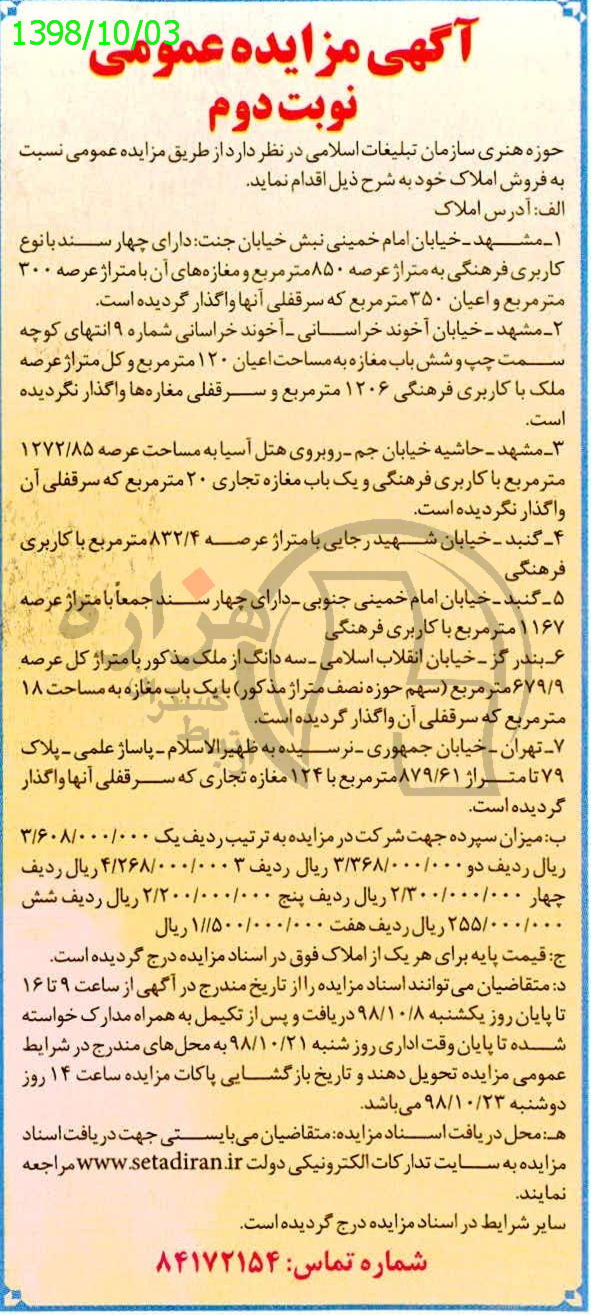 1398/10/03
آگهی مزایده عمومی
نوبت دوم
حوزه هنری سازمان تبلیغات اسلامی در نظر دارد از طریق مزایده عمومی نسبت
به فروش املاک خود به شرح ذیل اقدام نماید.
الف: آدرس املاک
۱ـ مشهد ـ خیابان امام خمینی نبش خیابان جنت: دارای چهار سند با نوع
کاربری فرهنگی به متراژ عرصه ۸۵۰ مترمربع و مغازه‌های آن با متراژ عرصه ۳۰۰
مترمربع و اعیان ۳۵۰ مترمربع که سرقفلی آنها واگذار گردیده است.
۲ـ مشهد ـ خیابان آخوند خراسانی ـ آخوند خراسانی شماره ۹ انتهای کوچه
سمت چپ و شش باب مغازه به مساحت اعیان ۱۲۰ مترمربع و کل متراژ عرصه
ملک با کاربری فرهنگی ۱۲۰۶ مترمربع و سرقفلی مغازه‌ها واگذار نگردیده
است.
۳ـ مشهد ـ حاشیه خیابان جم ـ روبروی هتل آسیا به مساحت عرصه ۱۲۷۲/۸۵
مترمربع با کاربری فرهنگی و یک باب مغازه تجاری ۲۰ مترمربع که سرقفلی آن
واگذار نگردیده است.
۴ـ گنبد ـ خیابان شهید رجایی با متراژ عرصه ۸۳۲/۴ مترمربع با کاربری
فرهنگی
۵ـ گنبد ـ خیابان امام خمینی جنوبی ـ دارای چهار سند جمعاً با متراژ عرصه
۱۱۶۷ مترمربع با کاربری فرهنگی
۶ـ بندر گز ـ خیابان انقلاب اسلامی ـ سه دانگ از ملک مذکور با متراژ کل عرصه
۶۷۹/۹ مترمربع (سهم حوزه نصف متراژ مذکور) با یک باب مغازه به مساحت ۱۸
مترمربع که سرقفلی آن واگذار گردیده است.
۷ـ تهران ـ خیابان جمهوری ـ نرسیده به ظهیرالاسلام ـ پاساژ علمی ـ پلاک
۷۹ تا متراژ ۸۷۹/۶۱ مترمربع با ۱۲۴ مغازه تجاری که سرقفلی آنها واگذار
گردیده است.
ب: میزان سپرده جهت شرکت در مزایده به ترتیب ردیف یک ۳/۶۰۸/۰۰۰/۰۰۰
ریال ردیف دو ۳/۳۶۸/۰۰۰/۰۰۰ ریال ردیف ۳ ۴/۲۶۸/۰۰۰/۰۰۰ ریال ردیف
چهار ۲/۳۰۰/۰۰۰/۰۰۰ ریال ردیف پنج ۲/۲۰۰/۰۰۰/۰۰۰ ریال ردیف شش
۲۵۵/۰۰۰/۰۰۰ ریال ردیف هفت ۱//۵۰۰/۰۰۰/۰۰۰ ریال
ج: قیمت پایه برای هر یک از املاک فوق در اسناد مزایده درج گردیده است.
د: متقاضیان می‌توانند اسناد مزایده را از تاریخ مندرج در آگهی از ساعت ۹ تا ۱۶
تا پایان روز یکشنبه ۹۸/۱۰/۸ دریافت و پس از تکمیل به همراه مدارک خواسته
شده تا پایان وقت اداری روز شنبه ۹۸/۱۰/۲۱ به محل‌های مندرج در شرایط
عمومی مزایده تحویل دهند و تاریخ بازگشایی پاکات مزایده ساعت ۱۴ روز
دوشنبه ۹۸/۱۰/۲۳ می‌باشد.
هـ: محل دریافت اسناد مزایده: متقاضیان می‌بایستی جهت دریافت اسناد
مزایده به سایت تدارکات الکترونیکی دولت www.setadiran.ir مراجعه
نمایند.
سایر شرایط در اسناد مزایده درج گردیده است.
شماره تماس: ۸۴۱۷۲۱۵۴
هزاره